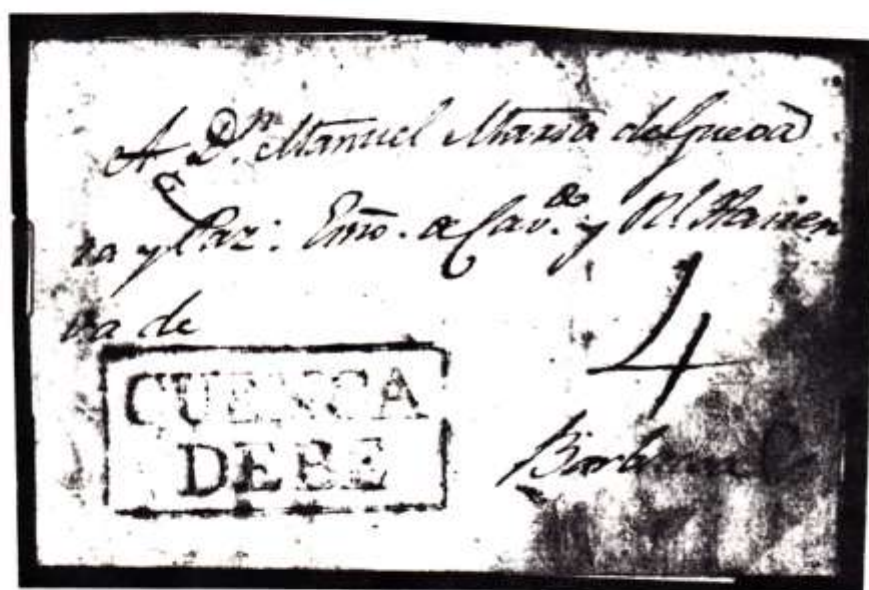 A D.n Manuel Maria de
y Paz: Emo. de Cav.do y Rl Hacien
da de
4
CUENCA
DEBE